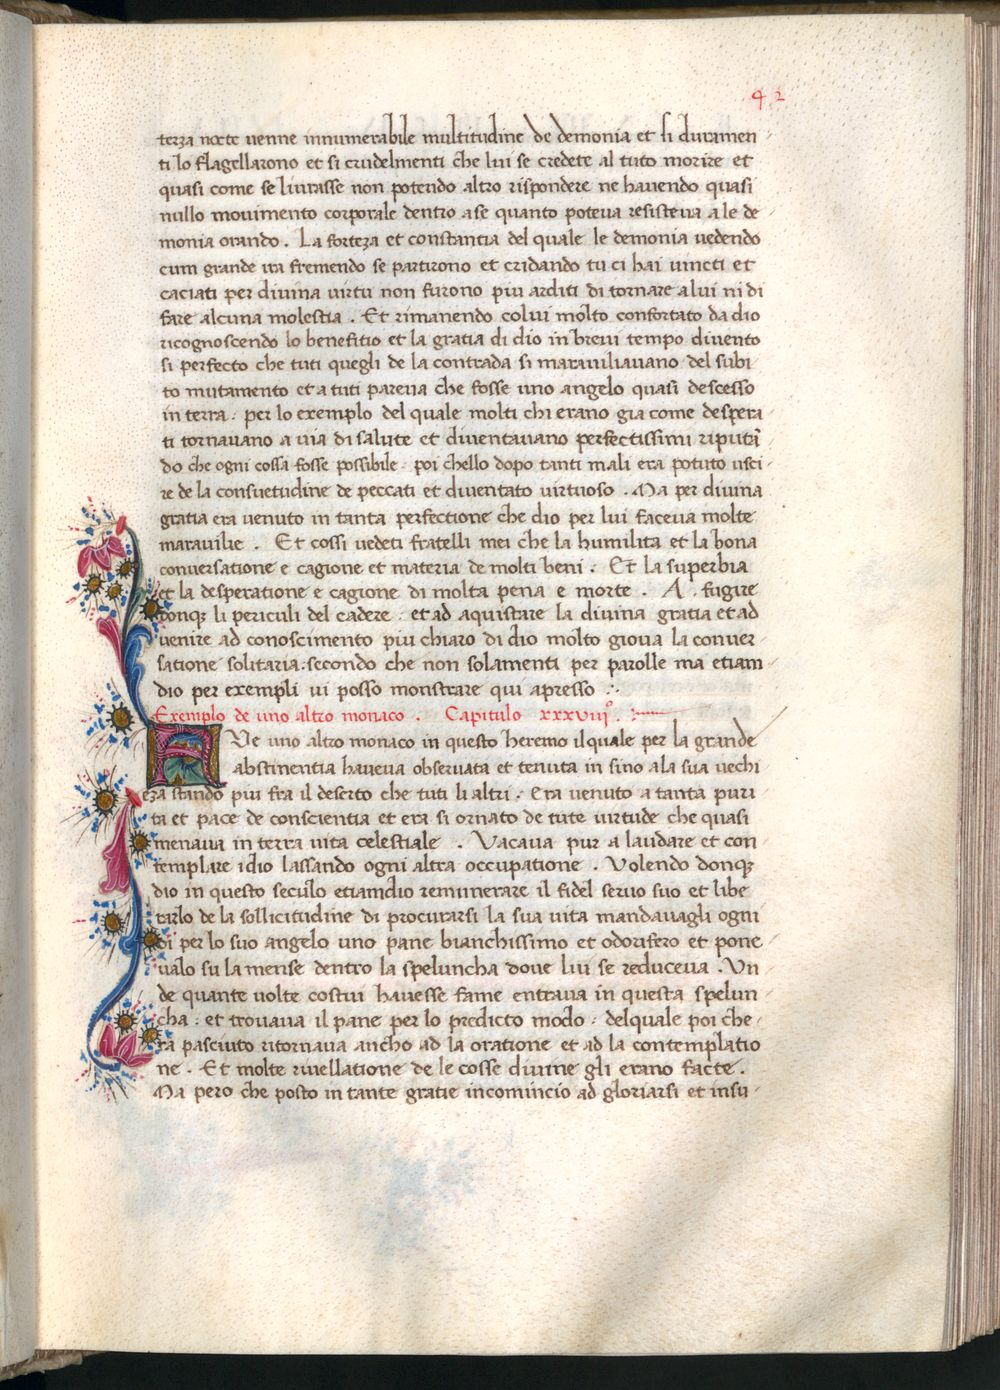 42
terza nocte uenne innumerabile multitudine de demonia et si duramen
ti lo flagellarono et si crudelmenti che lui se credete al tuto morire et
quasi come se liurasse non potendo altro rispondere ne hauendo quasi
nullo mouimento corporale dentro a se quanto poteua resisteua a le de
monia orando . La forteza et constantia del quale le demonia uedendo
cum grande ira fremendo se partirono et cridando tu ci hai uincti et
caciati per diuina uirtu non furono piu arditi di tornare a lui ni di
fare alcuna molestia . Et rimanendo colui molto confortato da dio
ricognoscendo lo benefitio et la gratia di dio in breui tempo diuento
si perfecto che tuti quegli de la contrada si marauiliauano del subi
to mutamento et a tuti pareua che fosse uno angelo quasi descesso
in terra : per lo exemplo del quale molti chi erano gia come despera
ti tornauano a uia di salute et diuentauano perfectissimi riputā
do che ogni cossa fosse possibile : poi chello dopo tanti mali era potuto usci
re de la consuetudine de peccati et diuentato uirtuoso . Ma per diuina
gratia era uenuto in tanta perfectione che dio per lui faceua molte
marauilie . Et cossi uedeti fratelli mei che la humilita et la bona
conuersatione e cagione et materia de molti beni . Et la superbia
et la desperatione e cagione di molta pena e morte . A . fugire
donqꝫ li periculi del cadere : et ad aquistare la diuina gratia et ad
uenire ad conoscimento piu chiaro di dio molto gioua la conuer
satione solitaria : secondo che non solamenti per parolle ma etiam
dio per exempli ui posso monstrare qui apresso .:.
Exemplo de uno altro monaco . Capitulo xxxviijº.
FVe uno altro monaco in questo heremo il quale per la grande
abstinentia haueua obseruata et tenuta in sino a la sua uechi
eza stando piu fra il deserto che tuti li altri : era uenuto a tanta puri
ta et pace de conscientia et era si ornato de tute uirtude che quasi
menaua in terra uita celestiale . Vacaua pur a laudare et con
templare idio lassando ogni altra occupatione . Volendo donqꝫ
dio in questo seculo etiamdio remunerare il fidel seruo suo et libe
rarlo de la sollicitudine di procurarsi la sua uita mandauagli ogni
di per lo suo angelo uno pane bianchissimo et odorifero et pone
ualo su la mense dentro la speluncha doue lui se reduceua . Vn
de quante uolte costui hauesse fame entraua in questa spelun
cha : et trouaua il pane per lo predicto modo : del quale poi che
ra pasciuto ritornaua ancho ad la oratione et ad la contemplatio
ne . Et molte riuellatione de le cosse diuine gli erano facte .
Ma pero che posto in tante gratie incomincio ad gloriarsi et insu